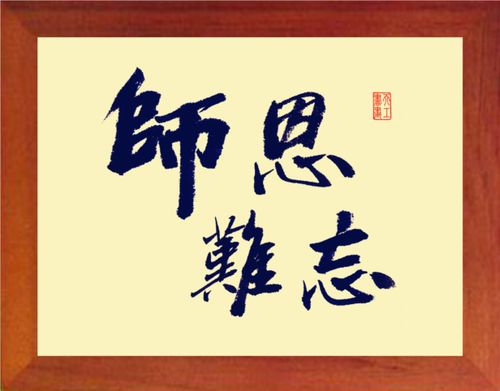 師恩
難忘